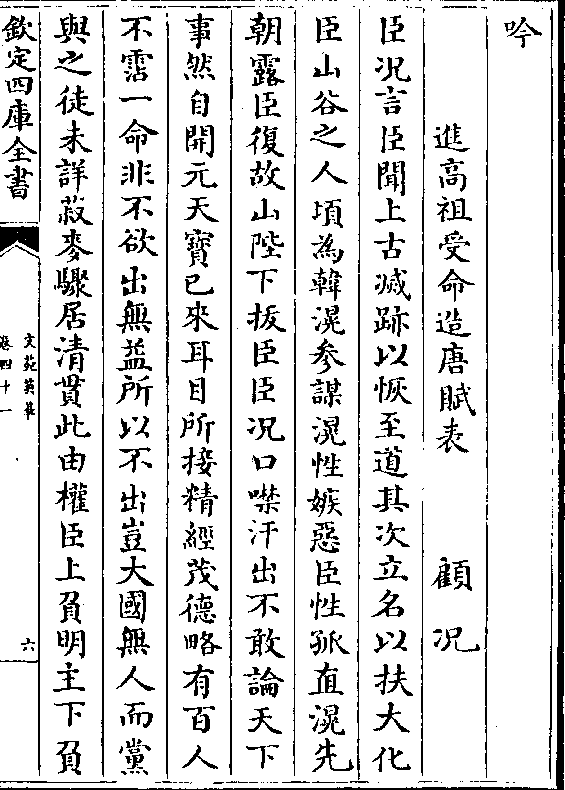 吟
進高祖受命造唐賦表　顧况
臣况言臣聞上古滅跡以恢至道其次立名以扶大化
臣山谷之人頃為韓滉參謀滉性嫉惡臣性孤直滉先
朝露臣復故山陛下拔臣臣况口噤汗出不敢論天下
事然自開元天寳已來耳目所接精經茂德略有百人
不霑一命非不欲出無益所以不出豈大國無人而黨
與之徒未詳菽麥驟居清貫此由權臣上負明主下負
欽定四庫全書
文苑英華
卷四十一
六